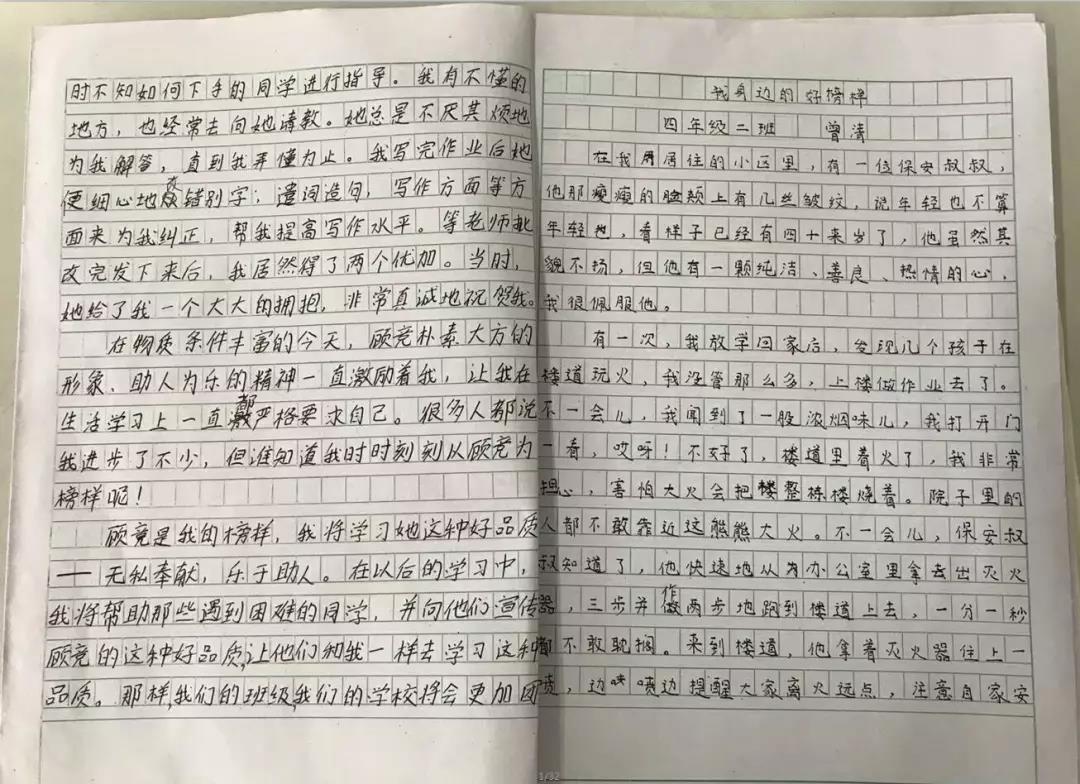 时不知如何下手的同学进行指导。我有不懂的
地方，也经常去向她请教。她总是不厌其烦地
为我解答，直到我弄懂为止。我写完作业后她
便细心地从错别字；遣词造句，写作方面等方
面来为我纠正，帮我提高写作水平。等老师批
改完发下来后，我居然得了两个优加。当时，
她给了我一个大大的拥抱，非常真诚地祝贺我。
在物质条件丰富的今天，顾竞朴素大方的
形象、助人为乐的精神一直激励着我，让我在
生活学习上一直都严格要求自己。很多人都说
我进步了不少，但谁知道我时时刻刻以顾竞为
榜样呢！
顾竟是我的榜样，我将学习她这种好品质
——无私奉献，乐于助人。在以后的学习中，
我将帮助那些遇到困难的同学，并向他们宣传
顾竞的这种好品质，让他们和我一样去学习这种
品质。那样，我们的班级，我们的学校将会更加团
我身边的好榜样
四年级二班 曾清
在我居住的小区里，有一位保安叔叔，
他那瘦瘦的脸颊上有几丝皱纹，说年轻也不算
年轻也，看样子已经有四十来岁了，他虽然其
貌不扬，但他有一颗纯洁、善良、热情的心，
我很佩服他。
有一次，我放学回家后，发现几个孩子在
楼道玩火，我没管那么多，上楼做作业去了。
不一会儿，我闻到了一股浓烟味儿，我打开门
一看，哎呀！不好了，楼道里着火了，我非常
担心，害怕大火会把整栋楼烧着。院子里的
人都不敢靠近这熊熊大火。不一会儿，保安叔
叔知道了，他快速地从办公室里拿去出灭火
器，三步并作两步地跑到楼道上去，一分一秒
都不敢耽搁。来到楼道，他拿着灭火器往上一
喷，边喷边提醒大家离火远点，注意自家安
1/32